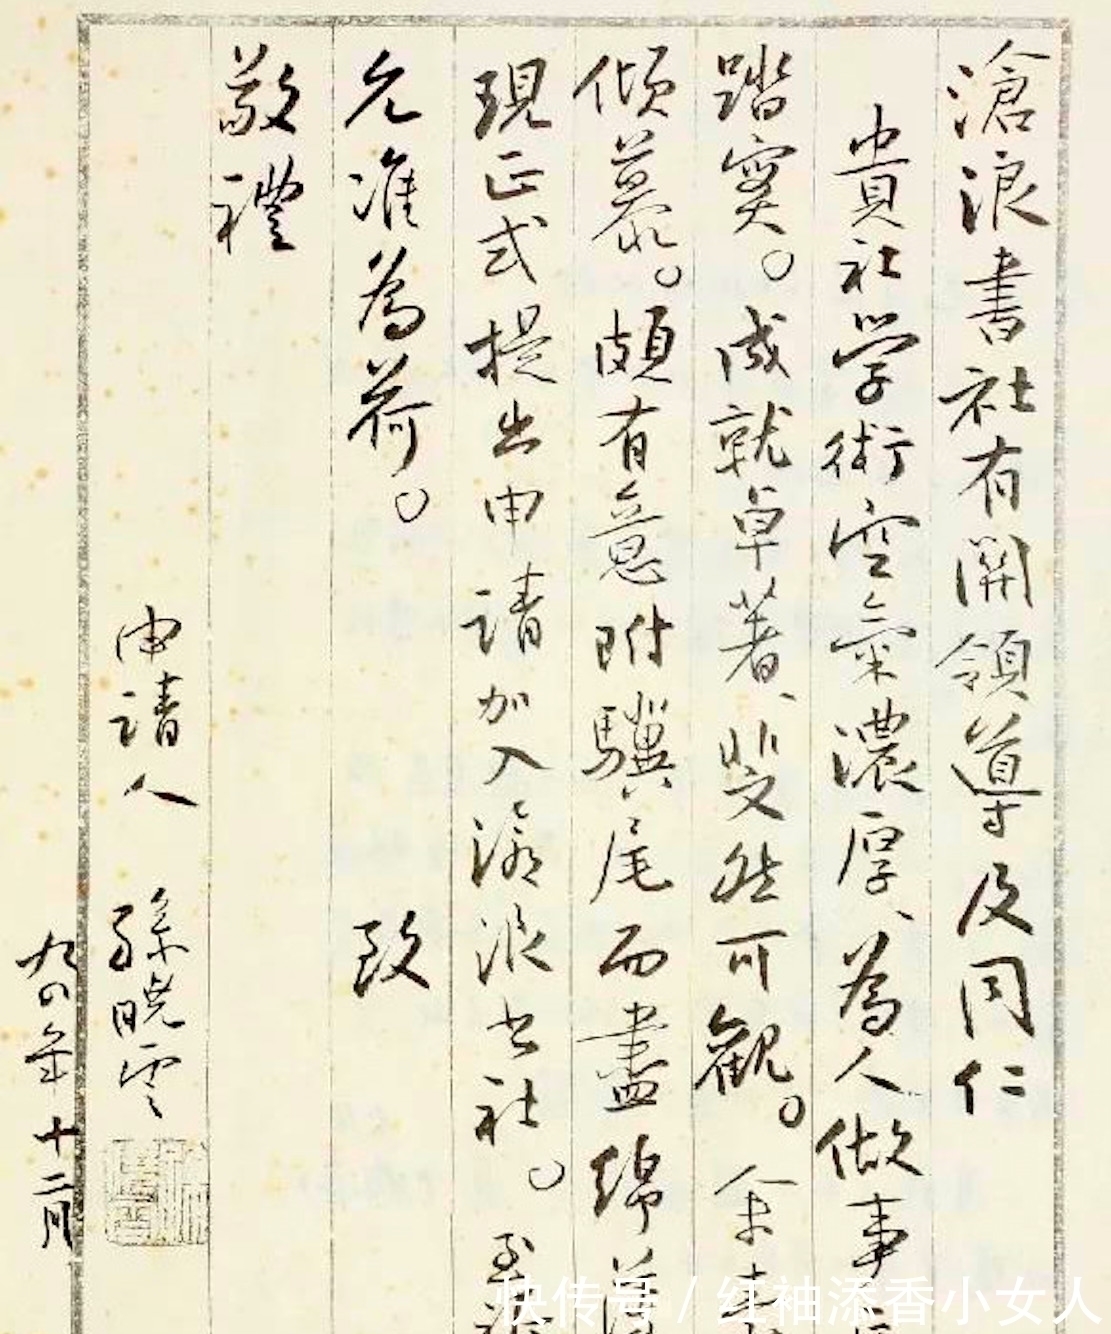 滄浪書社有關領導及同仁
貴社学術空氣濃厚、為人做事
踏實。成就卓著、斐然可觀。余
傾慕。頗有意附驥尾而盡綿薄
現正式提出申請加入滄浪书社。
允准為荷。 致
敬禮
申請人 孫曉雲
九四年十二月
快传号 / 红袖添香小女人